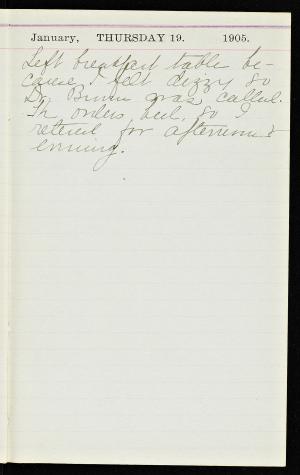 January, THURSDAY 19. 1905.
Left breakfast table be-
cause I felt dizzy so
Dr was called.
orders bed, so I
retired for afternoon &
evening.